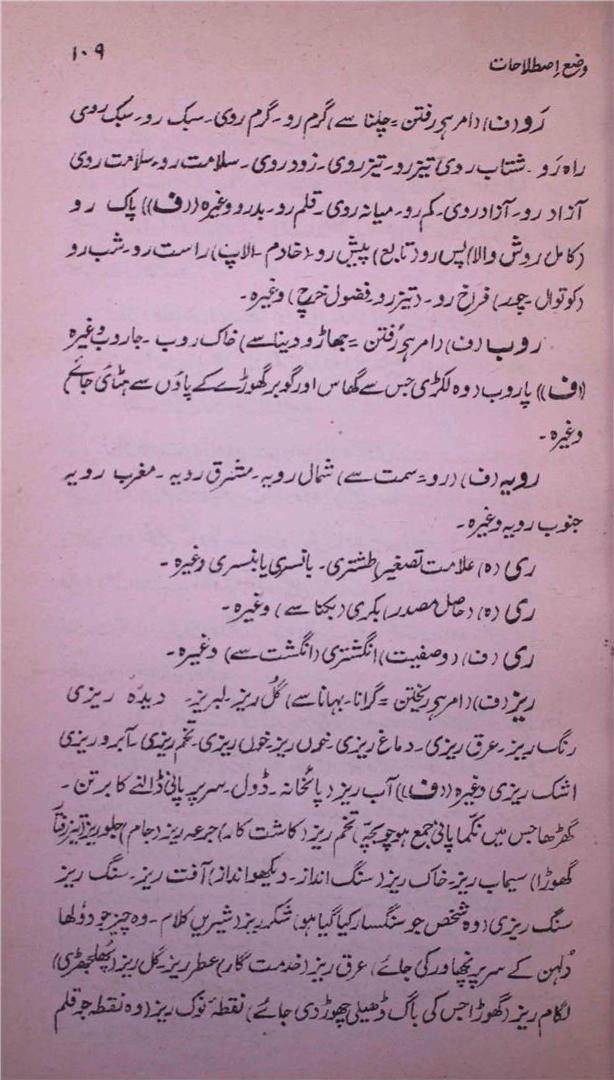 وضع اصطلاحات ۱۰۹
رَو (ف) (امر ہی رفتن = چلنا سے) گرم رو۔ گرم روی۔ سبک رو۔ سبک روی
راہ رَو۔ شتاب روی تیز رو۔ تیز روی۔ زود روی۔ سلامت رو۔ سلامت روی
آزاد رو۔ آزاد روی۔ کم رو۔ میانہ روی۔ قلم رو۔ بدرو وغیرہ ((ف)) پاک رو
(کامل روش والا) پس رو (تابع) پیش رو۔ (خادم۔ الاپ) راست رو۔ شب رو
(کوتوال۔ چور) فراخ رو۔ (تیز رو۔ فضول خرچ) وغیرہ۔
روب (ف) (امر ہی رُفتن = جھاڑو دینا سے) خاک روب۔ جاروب وغیرہ
((ف)) پاروب (وہ لکڑی جس سے گھاس اور گوبر گھوڑے کے پاؤں سے ہٹائی جائے)
وغیرہ۔
رویہ (ف) (رو = سمت سے) شمال رویہ۔ مشرق رویہ۔ مغرب رویہ
جنوب رویہ وغیرہ۔
ری (ہ) علامت تصغیر) طشتری۔ بانسری یا بنسری وغیرہ۔
ری (ہ) (حاصل مصدر) بکری (بکنا سے) وغیرہ۔
ری (ف) (وصفیت) انگشتری (انگشت سے) وغیرہ۔
ریز (ف) (امر ہی ریختن = گرانا۔ بہانا سے) گُل ریز۔ لبریز۔ دیدہ ریزی
رنگ ریز۔ عرق ریزی۔ دماغ ریزی۔ خوں ریز۔ خوں ریزی۔ تخم ریزی۔ آبرو ریزی
اشک ریزی وغیرہ ((ف)) آب ریز (پائخانہ۔ ڈول۔ سر پر پانی ڈالنے کا برتن۔
گڑھا جس میں نکما پانی جمع ہو چوبچہ) تخم ریز (کاشت کار) جرعہ ریز (جام) جلو ریز (تیز رفتار
گھوڑا) سیماب ریز۔ خاک ریز (سنگ انداز۔ دیکھو انداز) آفت ریز۔ سنگ ریز
سنگ ریزی (وہ شخص جو سنگسار کیا گیا ہو) شکر ریز (شیریں کلام۔ وہ چیز جو دُولھا
دُلہن کے سر پر نچھاور کی جائے) عرق ریز (خدمت گار) عطر ریز۔ گل ریز (پھلجھڑی)
لگام ریز (گھوڑا جس کی باگ ڈھیلی چھوڑ دی جائے) نقطۂ نوک ریز (وہ نقطہ جو قلم